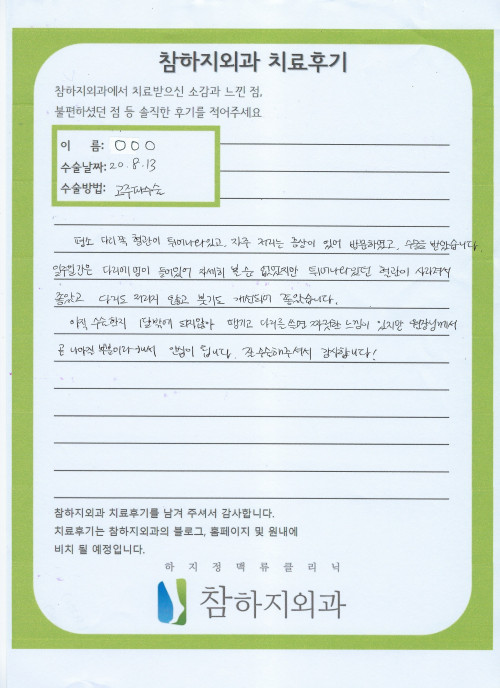 참하지외과 치료후기
참하지외과에서 치료받으신 소감과 느낀 점,
불편하셨던 점 등 솔직한 후기를 적어주세요
이 름: OOO
수술날짜: 20.8.13
수술방법: 고주파수술
평소 다리쪽 혈관이 튀어나와있고, 자주 저리는 증상이 있어 방문하였고, 수술을 받았습니다.
일주일간은 다리에 멍이 들어있어 자세히 볼 순 없었지만 튀어나와있던 혈관이 사라져서
좋았고 다리도 저리지 않고 붓기도 개선되어 좋았습니다.
아직 수술한지 1달밖에 되지않아 땡기고 다리를 쓰면 찌릿한 느낌이 있지만 원장님께서
곧 나아질 부분이라 해서 안심이 됩니다. 잘 수술해주셔서 감사합니다!
참하지외과 치료후기를 남겨 주셔서 감사합니다.
치료후기는 참하지외과의 블로그, 홈페이지 및 원내에
비치 될 예정입니다.
하지정맥류클리닉
참하지외과